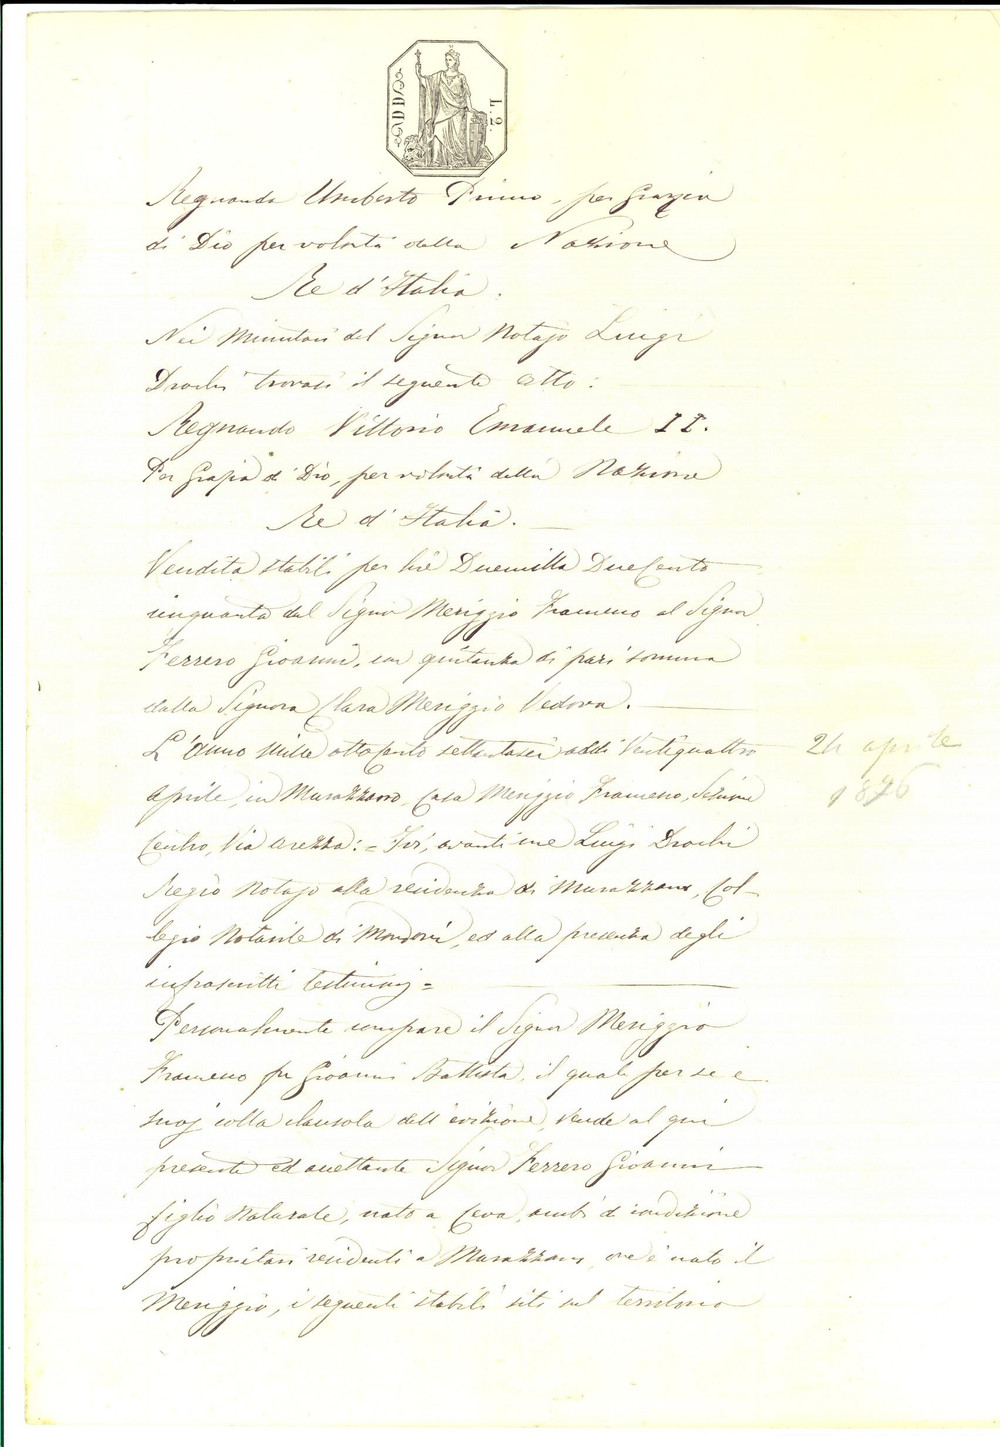 L. 2.
Regnando Umberto Primo, per Grazia
di Dio per volontà della Nazione
Re d'Italia.
Nei Minutari del Signor Notajo Luigi
Drochi trovasi il seguente atto:
Regnando Vittorio Emanuele II.
Per Grazia di Dio, per volontà della Nazione
Re d'Italia.
Vendita stabili per lire Duemilla DueCento
cinquanta dal Signor Meriggio Frameno al Signor
Ferrero Gioanni, con quitanza di pari somma
dalla Signora Clara Meriggio Vedova.
L'Anno mille ottocento settantasei addi Ventiquattro
Aprile, in Murazzano, Casa Meriggio Frameno, Sezione
Centro, Via Arezza: = Ivi, avanti me Luigi Drochi
Regio Notajo alla residenza di Murazzano, Col-
legio Notarile di Mondovi, ed alla presenza degli
infrascritti testimonj =
Personalmente compare il Signor Meriggio
Frameno fu Gioanni Battista, il quale per se e
suoj colla clausola dell'evizione, vende al qui
presente ed accettante Signor Ferrero Gioanni
figlio Naturale, nato a Ceva, ambi di condizione
proprietari residenti a Murazzano, ove è nato il
Meriggio, i seguenti stabili siti sul territorio
24 aprile
1876